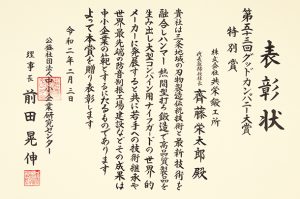 表彰状
第五十三回グッドカンパニー大賞
特別賞
株式会社共栄鍛工所
代表取締役社長 齊藤栄太郎 殿
貴社は三条地域の刃物製造伝統技術と最新技術を
融合しハンマー熱間型打ち鍛造で高品質製品を
生み出し大型コンバイン用ナイフガードの世界的
メーカーに発展すると共に若手への技術継承や
世界最先端の防音制振工場建設などその成果は
中小企業の範となるに足るものであります
よって本賞を贈り表彰します
令和二年二月三日
公益社団法人中小企業研究センター
理事長 前田晃伸